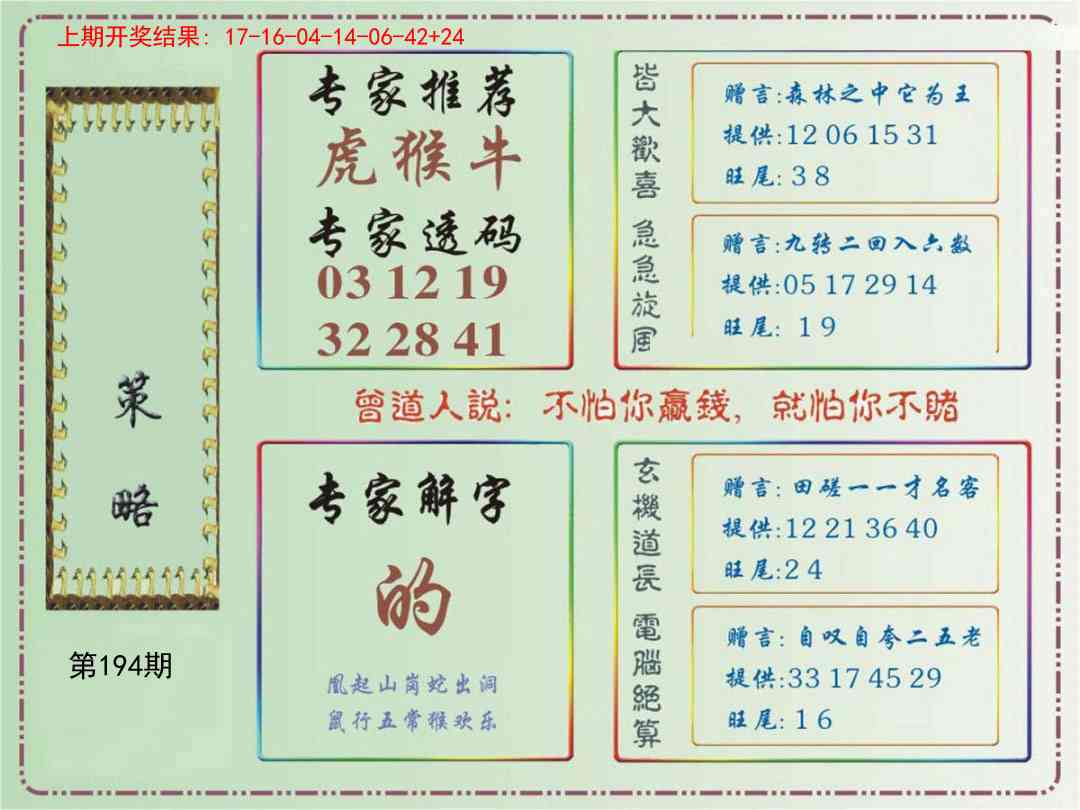 上期开奖结果：17-16-04-14-06-42+24
策略
第194期
专家推荐
虎猴牛
专家透码
03 12 19
32 28 41
皆大歡喜
赠言:森林之中它为王
提供:12 06 15 31
旺尾: 3 8
急急旋風
赠言:九转二回入六数
提供:05 17 29 14
旺尾: 1 9
曾道人説: 不怕你赢錢, 就怕你不賭
专家解字
的
凰起山岗蛇出洞
鼠行五常猴欢乐
玄機道長
赠言: 田磋一一才名客
提供:12 21 36 40
旺尾:2 4
電腦絕算
赠言: 自叹自夸二五老
提供:33 17 45 29
旺尾: 1 6